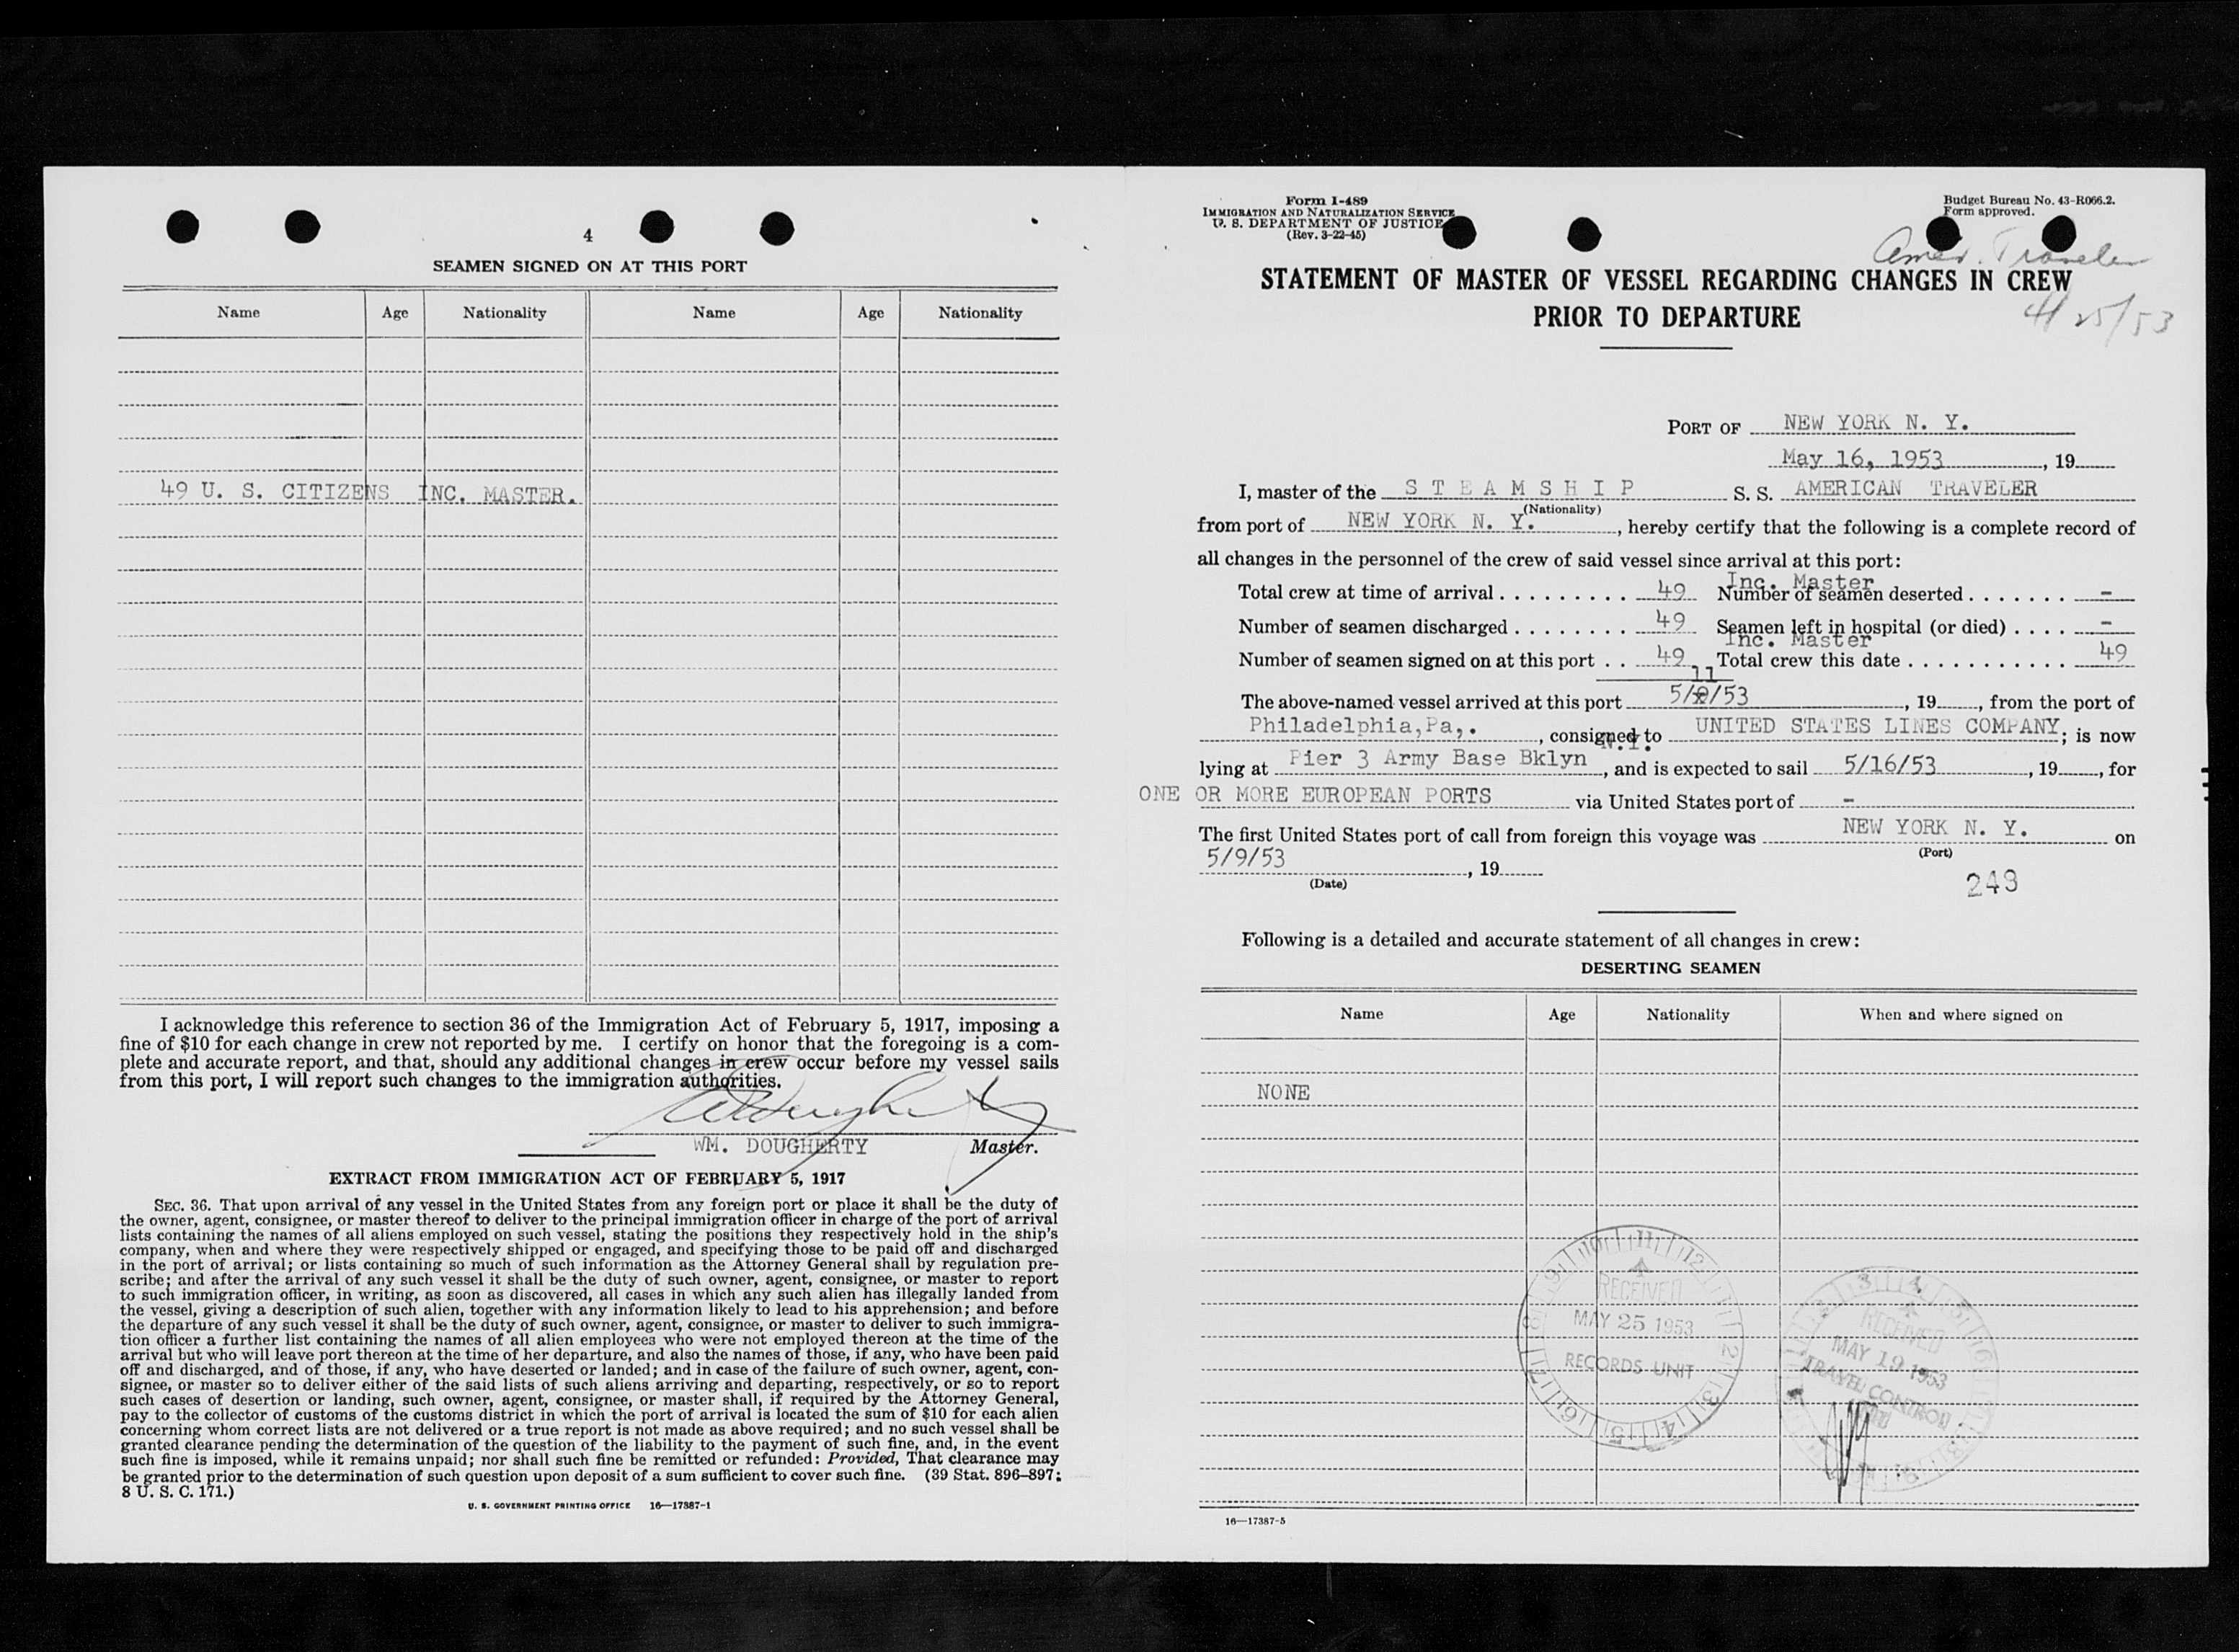 4
SEAMEN SIGNED ON AT THIS PORT
Name Age Nationality Name Age Nationality
49 U. S. CITIZENS INC. MASTER.
I acknowledge this reference to section 36 of the Immigration Act of February 5, 1917, imposing a
fine of $10 for each change in crew not reported by me. I certify on honor that the foregoing is a com-
plete and accurate report, and that, should any additional changes in crew occur before my vessel sails
from this port, I will report such changes to the immigration authorities.
WM. DOUGHERTY Master.
EXTRACT FROM IMMIGRATION ACT OF FEBRUARY 5, 1917
SEC. 36. That upon arrival of any vessel in the United States from any foreign port or place it shall be the duty of
the owner, agent, consignee, or master thereof to deliver to the principal immigration officer in charge of the port of arrival
lists containing the names of all aliens employed on such vessel, stating the positions they respectively hold in the ship's
company, when and where they were respectively shipped or engaged, and specifying those to be paid off and discharged
in the port of arrival; or lists containing so much of such information as the Attorney General shall by regulation pre-
scribe; and after the arrival of any such vessel it shall be the duty of such owner, agent, consignee, or master to report
to such immigration officer, in writing, as soon as discovered, all cases in which any such alien has illegally landed from
the vessel, giving a description of such alien, together with any information likely to lead to his apprehension; and before
the departure of any such vessel it shall be the duty of such owner, agent, consignee, or master to deliver to such immigra-
tion officer a further list containing the names of all alien employees who were not employed thereon at the time of the
arrival but who will leave port thereon at the time of her departure, and also the names of those, if any, who have been paid
off and discharged, and of those, if any, who have deserted or landed; and in case of the failure of such owner, agent, con-
signee, or master so to deliver either of the said lists of such aliens arriving and departing, respectively, or so to report
such cases of desertion or landing, such owner, agent, consignee, or master shall, if required by the Attorney General,
pay to the collector of customs of the customs district in which the port of arrival is located the sum of $10 for each alien
concerning whom correct lists are not delivered or a true report is not made as above required; and no such vessel shall be
granted clearance pending the determination of the question of the liability to the payment of such fine, and, in the event
such fine is imposed, while it remains unpaid; nor shall such fine be remitted or refunded: Provided, That clearance may
be granted prior to the determination of such question upon deposit of a sum sufficient to cover such fine. (39 Stat. 896–897;
8 U. S. C. 171.)
U. S. GOVERNMENT PRINTING OFFICE 16—17387-1
Form I-489
IMMIGRATION AND NATURALIZATION SERVICE
U. S. DEPARTMENT OF JUSTICE
(Rev. 3-22-45)
Budget Bureau No. 43-R066.2.
Form approved.
Amer. Traveler
STATEMENT OF MASTER OF VESSEL REGARDING CHANGES IN CREW
PRIOR TO DEPARTURE
4/25/53
PORT OF NEW YORK N. Y.
May 16, 1953, 19
I, master of the STEAMSHIP S. S. AMERICAN TRAVELER
(Nationality)
from port of NEW YORK N. Y., hereby certify that the following is a complete record of
all changes in the personnel of the crew of said vessel since arrival at this port:
Inc. Master
Total crew at time of arrival 49 Number of seamen deserted -
Number of seamen discharged 49 Seamen left in hospital (or died) -
Inc. Master
Number of seamen signed on at this port 49 Total crew this date 49
11
The above-named vessel arrived at this port 5/9/53, 19, from the port of
Philadelphia,Pa,., consigned to UNITED STATES LINES COMPANY; is now
N.Y.
lying at Pier 3 Army Base Bklyn, and is expected to sail 5/16/53, 19, for
ONE OR MORE EUROPEAN PORTS via United States port of -
The first United States port of call from foreign this voyage was NEW YORK N. Y. on
(Port)
5/9/53, 19
(Date)
243
Following is a detailed and accurate statement of all changes in crew:
DESERTING SEAMEN
Name Age Nationality When and where signed on
NONE
RECEIVED
MAY 25 1953
RECORDS UNIT
RECEIVED
MAY 19 1953
TRAVEL CONTROL
16—17387-5